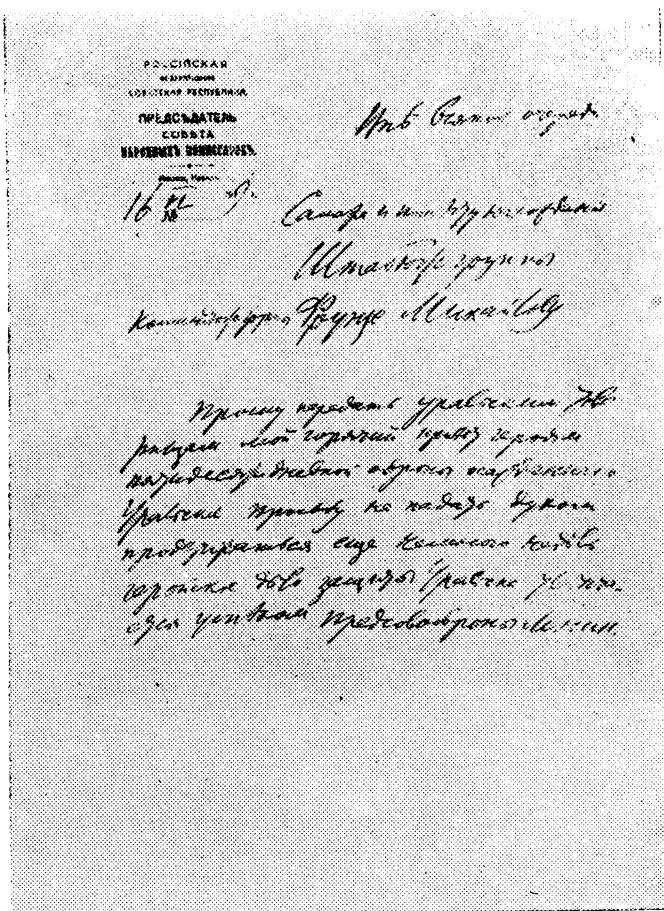 РОССІЙСКАЯ
ФЕДЕРАТИВНАЯ
СОВѢТСКАЯ РЕСПУБЛИКА.
ПРЕДСѢДАТЕЛЬ
СОВѢТА
НАРОДНЫХЪ КОМИССАРОВЪ.
Москва, Кремль.
16
Внѣ всякой очереди
Самара
Штаюж группы
Фрунзе Михайлову
Прошу передать уральским
мой горячий привет героям
пятидесятидневной обороны осажденного
Уральска прошу не падать духом
продержаться еще немного недель
геройское дело защиты Уральска
успехом предсовобороны Ленин.